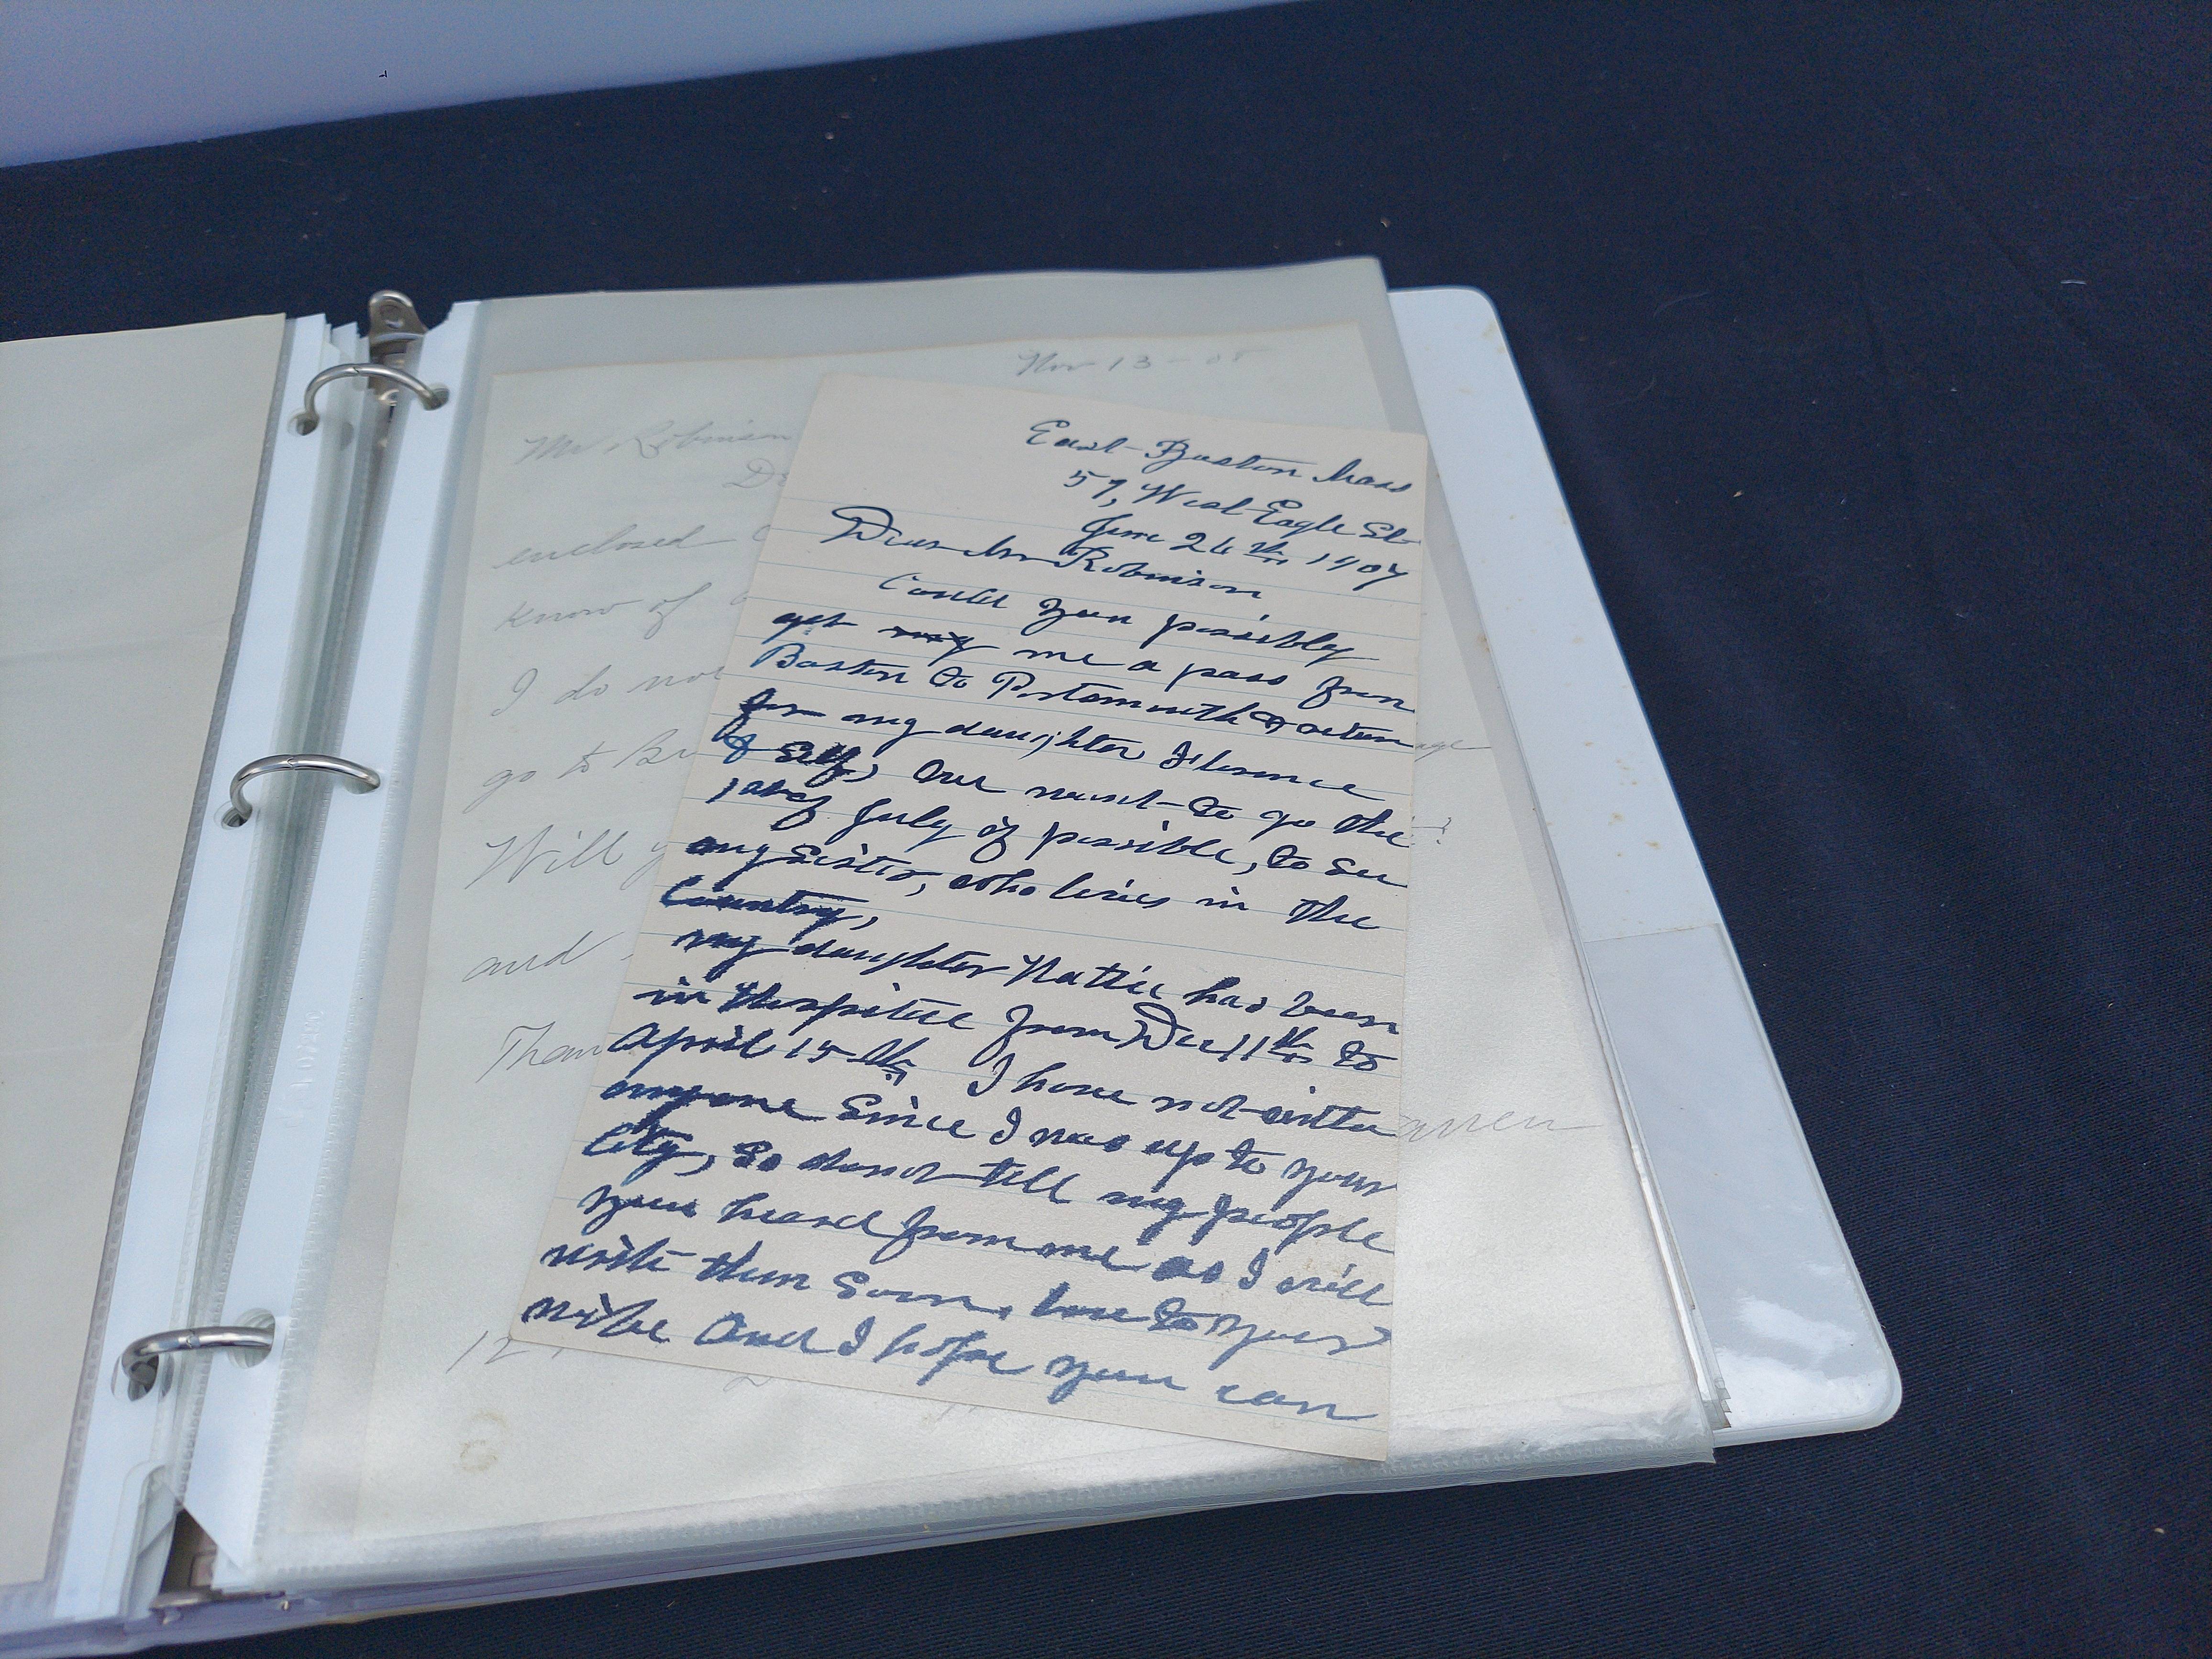 Nov 13 - 08
Mr Robinson
enclosed
know of
I do not
go to
Will
and
Than
East Boston Mass
57, West Eagle St
June 26th 1907
Dear Mr Robinson
Could you possibly
get my me a pass from
Boston to Portsmouth & return
for my daughter Florence
& Self, We want to go the
1st of July if possible, to see
my Sister, who lives in the
Country,
my daughter Hattie has been
in Hospital from Dec 11th to
April 15th, I have not writen
anyone Since I was up to your
City, So do not tell my people
you heard from me as I will
write them Soon, love to your
wife And I hope you can